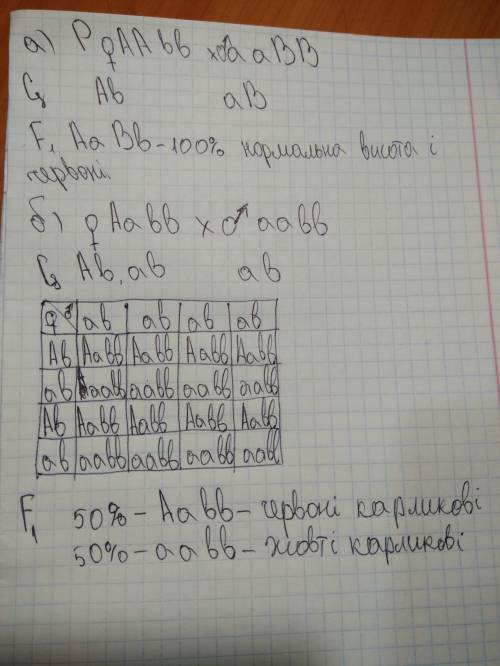 а) P ♀AAbb x♂aaBB
G Ab aB
F₁ AaBb-100% нормальна висота і
червоні.
б) ♀Aabb x ♂aabb
G Ab, ab ab
♀♂ ab ab ab ab
Ab Aabb Aabb Aabb Aabb
ab aabb aabb aabb aabb
Ab Aabb Aabb Aabb Aabb
ab aabb aabb aabb aabb
F₁ 50% - Aabb - червоні карликові
50% - aabb - жовті карликові